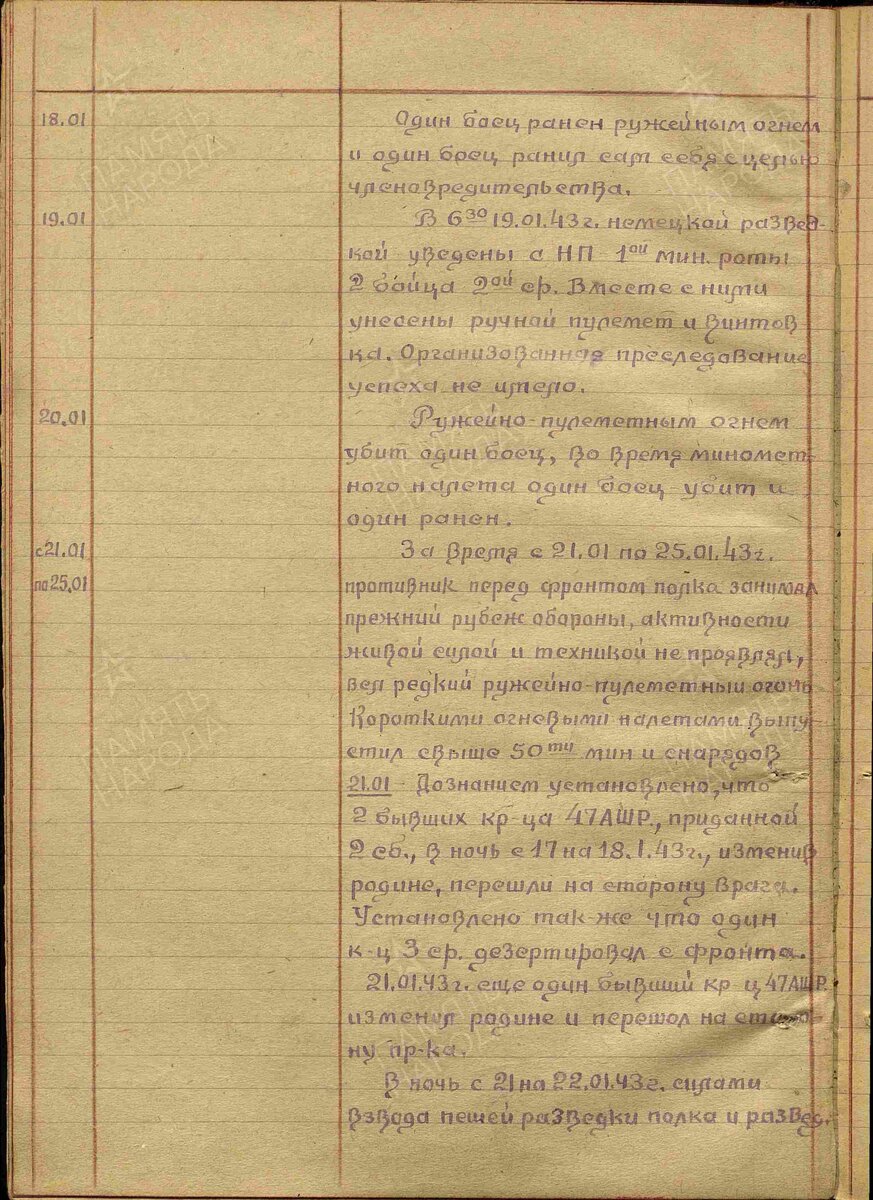 18.01 Один боец ранен ружейным огнем
и один боец ранил сам себя с целью
членовредительства.
19.01 В 6³⁰ 19.01.43г. немецкой развед-
кой уведены с НП 1ой мин. роты
2 бойца 2ой ср. Вместе с ними
унесены ручной пулемет и винтов
ка. Организованная преследование
успеха не имело.
20.01 Ружейно-пулеметным огнем
убит один боец, во время миномет-
ного налета один боец убит и
один ранен.
с 21.01 За время с 21.01 по 25.01.43г.
по 25.01 противник перед фронтом полка занимал
прежний рубеж обороны, активности
живой силой и техникой не проявлял,
вел редкий ружейно-пулеметный огонь
Короткими огневыми налетами выпу-
стил свыше 50ти мин и снарядов
21.01 - Дознанием установлено, что
2 бывших кр-ца 47АШР., приданной
2 сб., в ночь с 17 на 18.1.43г., изменив
родине, перешли на сторону врага.
Установлено так-же что один
к-ц 3 ср. дезертировал с фронта.
21.01.43г. еще один бывший кр-ц 47АШР
изменил родине и перешол на сторо-
ну пр-ка.
В ночь с 21 на 22.01.43г. силами
взвода пешей разведки полка и развед.
ПАМЯТЬ
НАРОДА
ПАМЯТЬ
НАРОДА